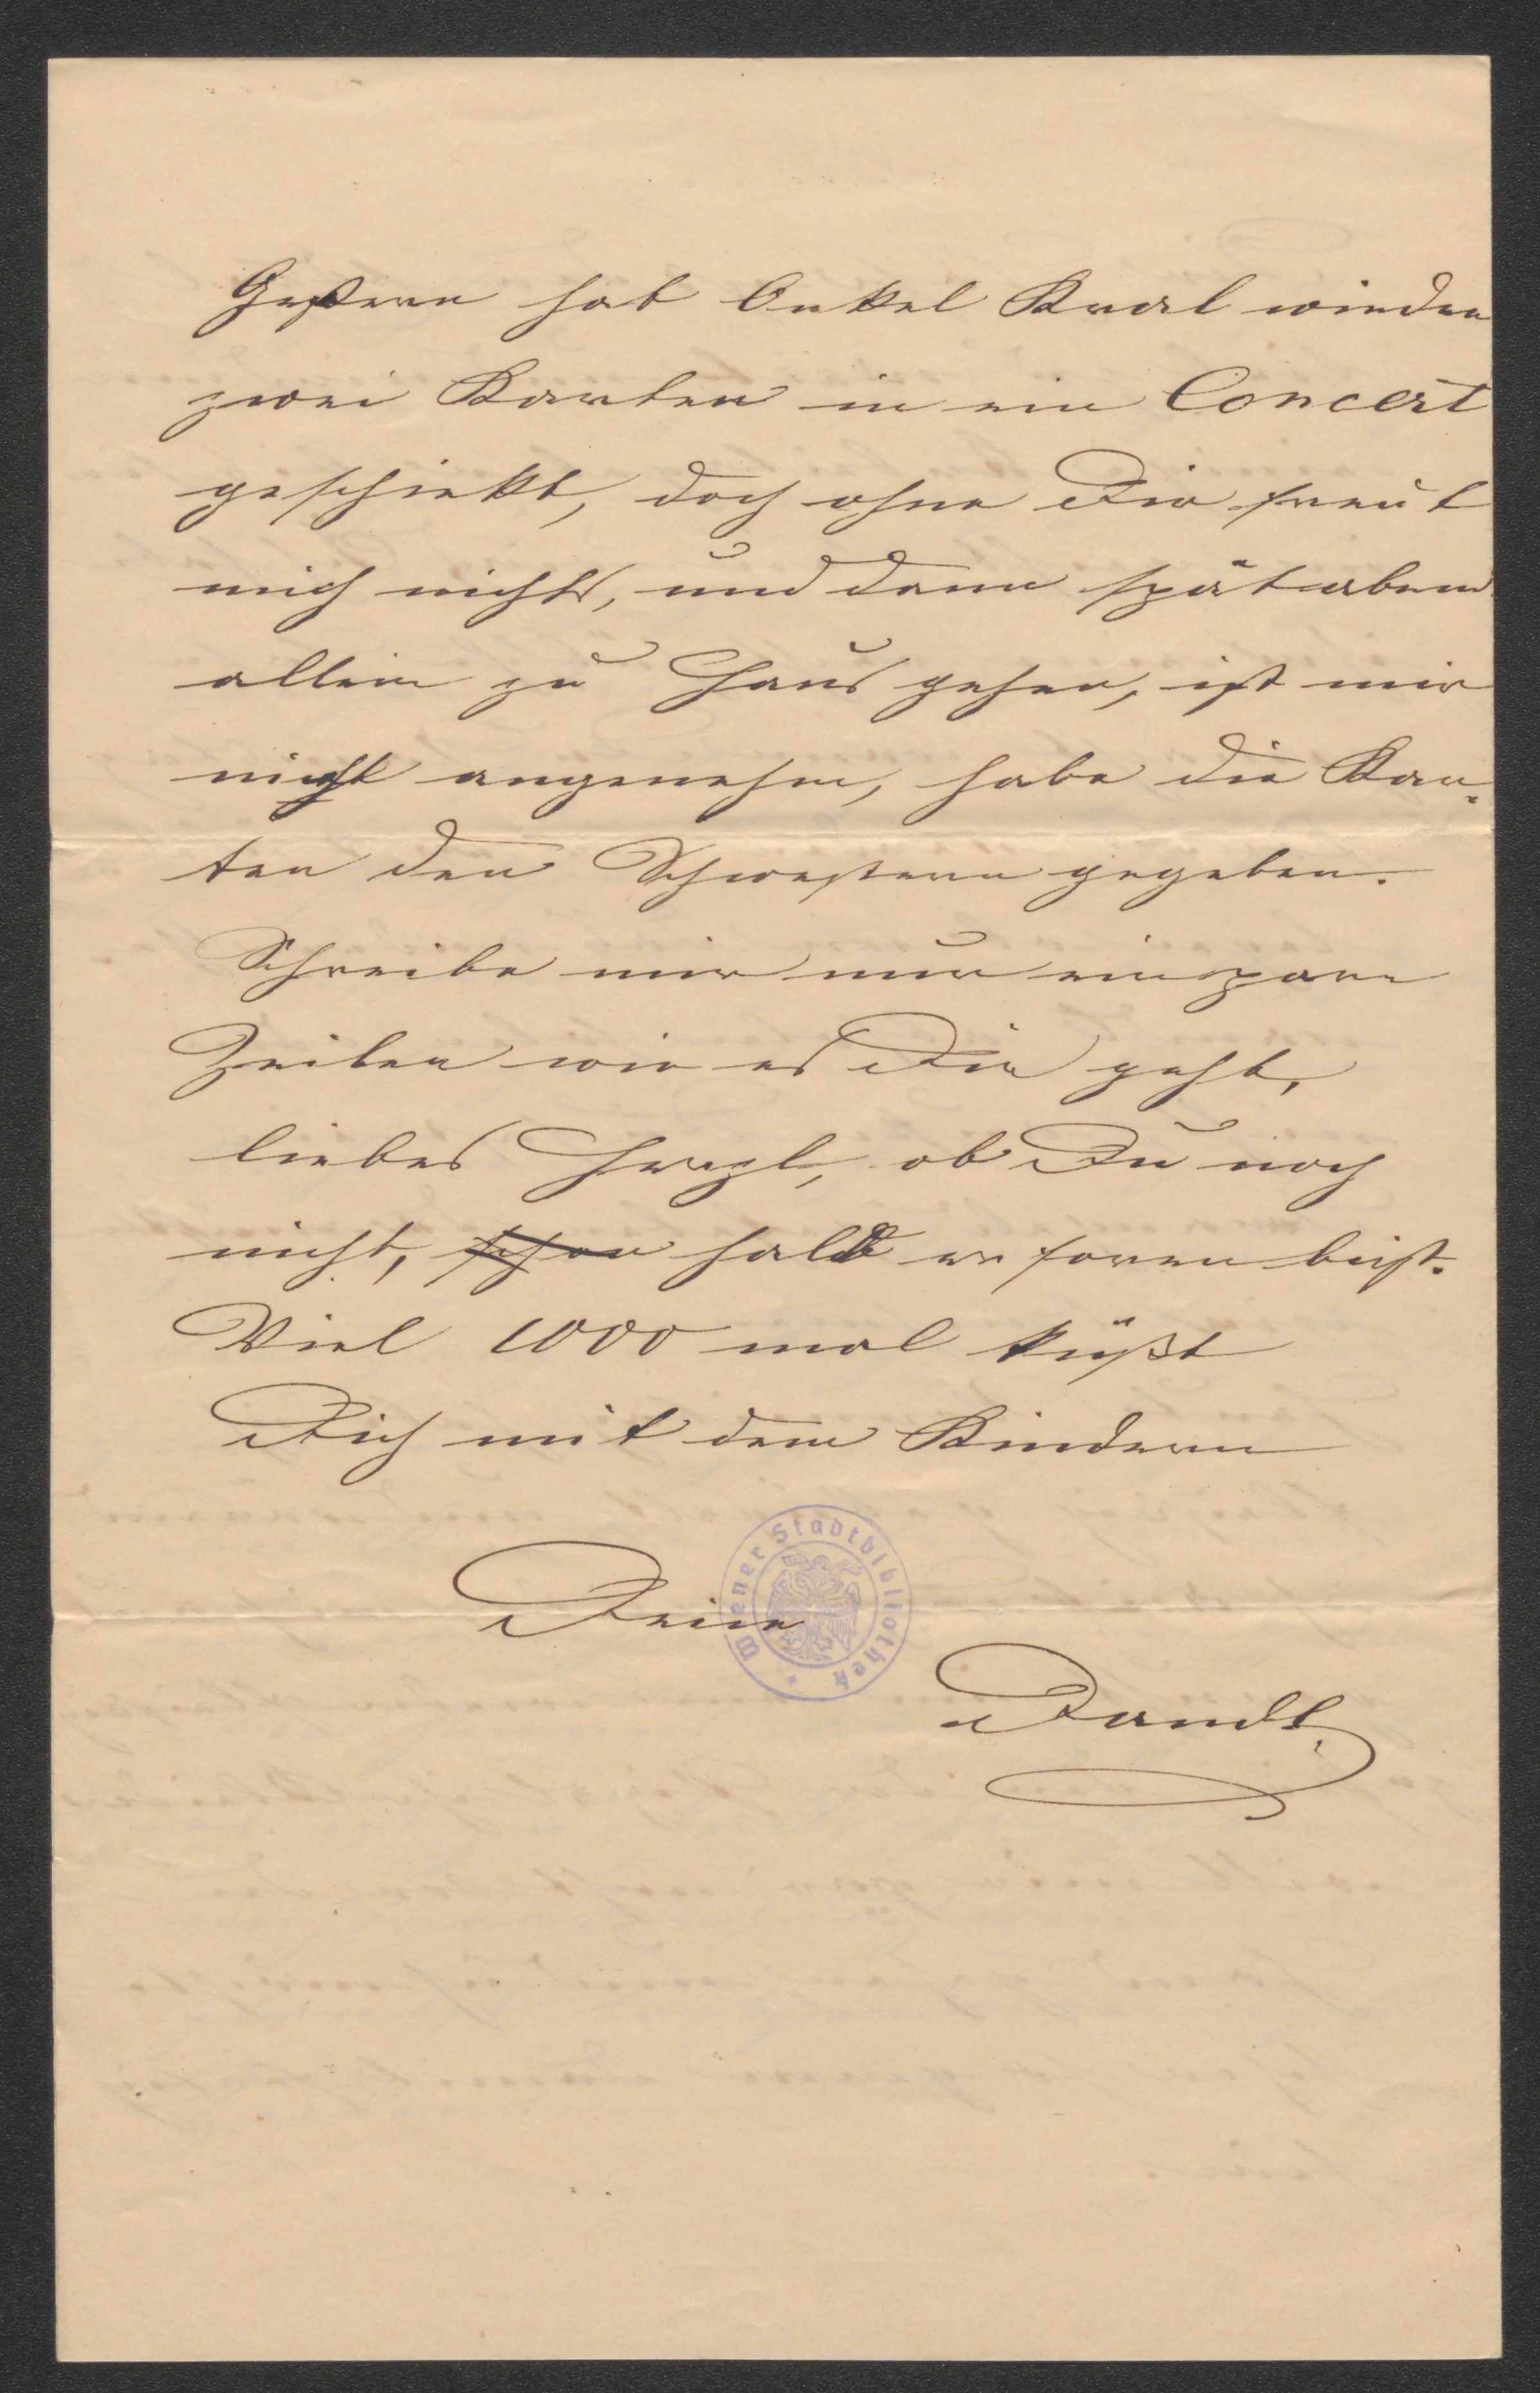 Gestern hat Onkel Kral wieder
zwei Karten in ein Concert
geschickt, doch ohne Dir freut
mich nichts, und dann spät abend
allein zu Haus gehen, ist mir
nicht angenehm, habe die Kar-
ten den Schwestern gegeben.
Schreibe mir nur ein paar
Zeilen wie es Dir geht,
liebes Herzl, ob Du noch
nicht, schon halb erforen bist.
Viel 1000 mal küßt
Dich mit dem Kindern
Deine
Wiener Stadtbibliothek